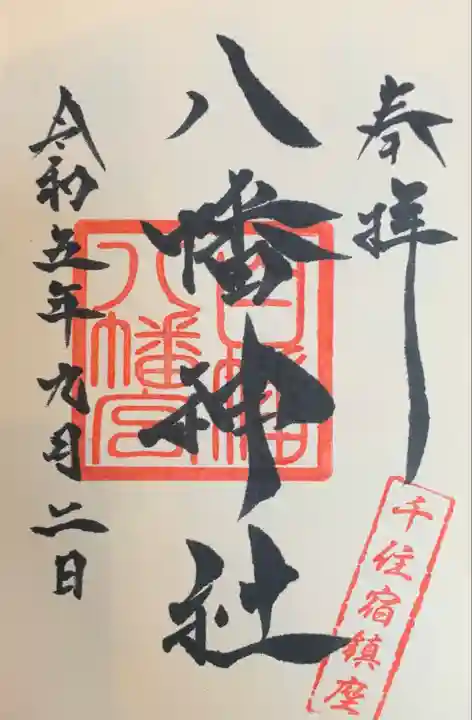 奉拝
千住宿鎮座
八幡神社
八幡宮
令和五年九月二日